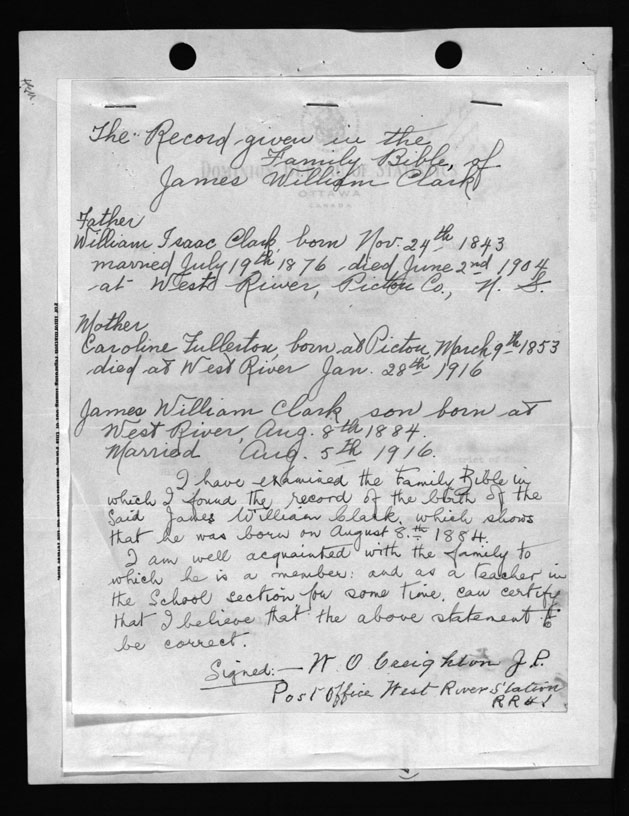 The Record given in the
Family Bible, of
James William Clark
Father
William Isaac Clark, born Nov. 24th 1843
married July 19th 1876 died June 2nd 1904
at West River, Pictou Co., N. S.
Mother
Caroline Fullerton born at Pictou, March 9th 1853
died at West River Jan. 28th 1916
James William Clark son born at
West River, Aug. 8th 1884.
Married Aug. 5th 1916.
I have examined the Family Bible in
which I found the record of the birth of the
said James William Clark, which shows
that he was born on August 8.th 1884.
I am well acquainted with the family to
which he is a member: and as a teacher in
the School section for some time, can certify
that I believe that the above statement to
be correct.
Signed:— W O Creighton J.P.
Post Office West River Station